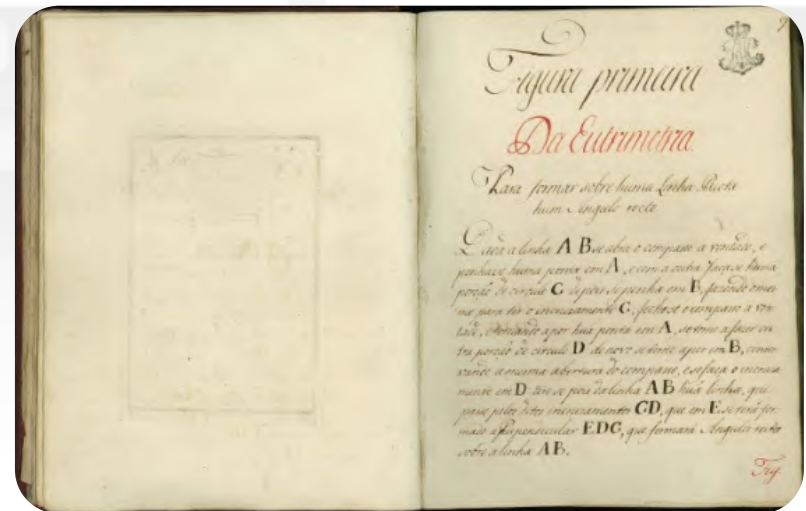 Figura primeira
Da Eutrimetria.
Para formar sobre huma Linha Recta
hum Angulo recto
Dada a linha A B se abra o compasso a vontade, e
ponhase huma ponta em A, e com a outra faça-se huma
porção de circulo C depois se ponha em B, fazendo o mes-
mo para ter o incruzamento C, feche-se o compasso a von-
tade, e tornando a por hua ponta em A, se torne a fazer ou-
tra porção de circulo D de novo se torne a por em B, conser-
vando a mesma abertura do compasso, e se faça o incruza-
mento em D tire-se pois da linha A B huã linha, que
passe pelos ditos incruzamentos CD, que em E se terá for-
mado a Perpendicular EDC, que formará Angulo recto
sobre a linha AB.